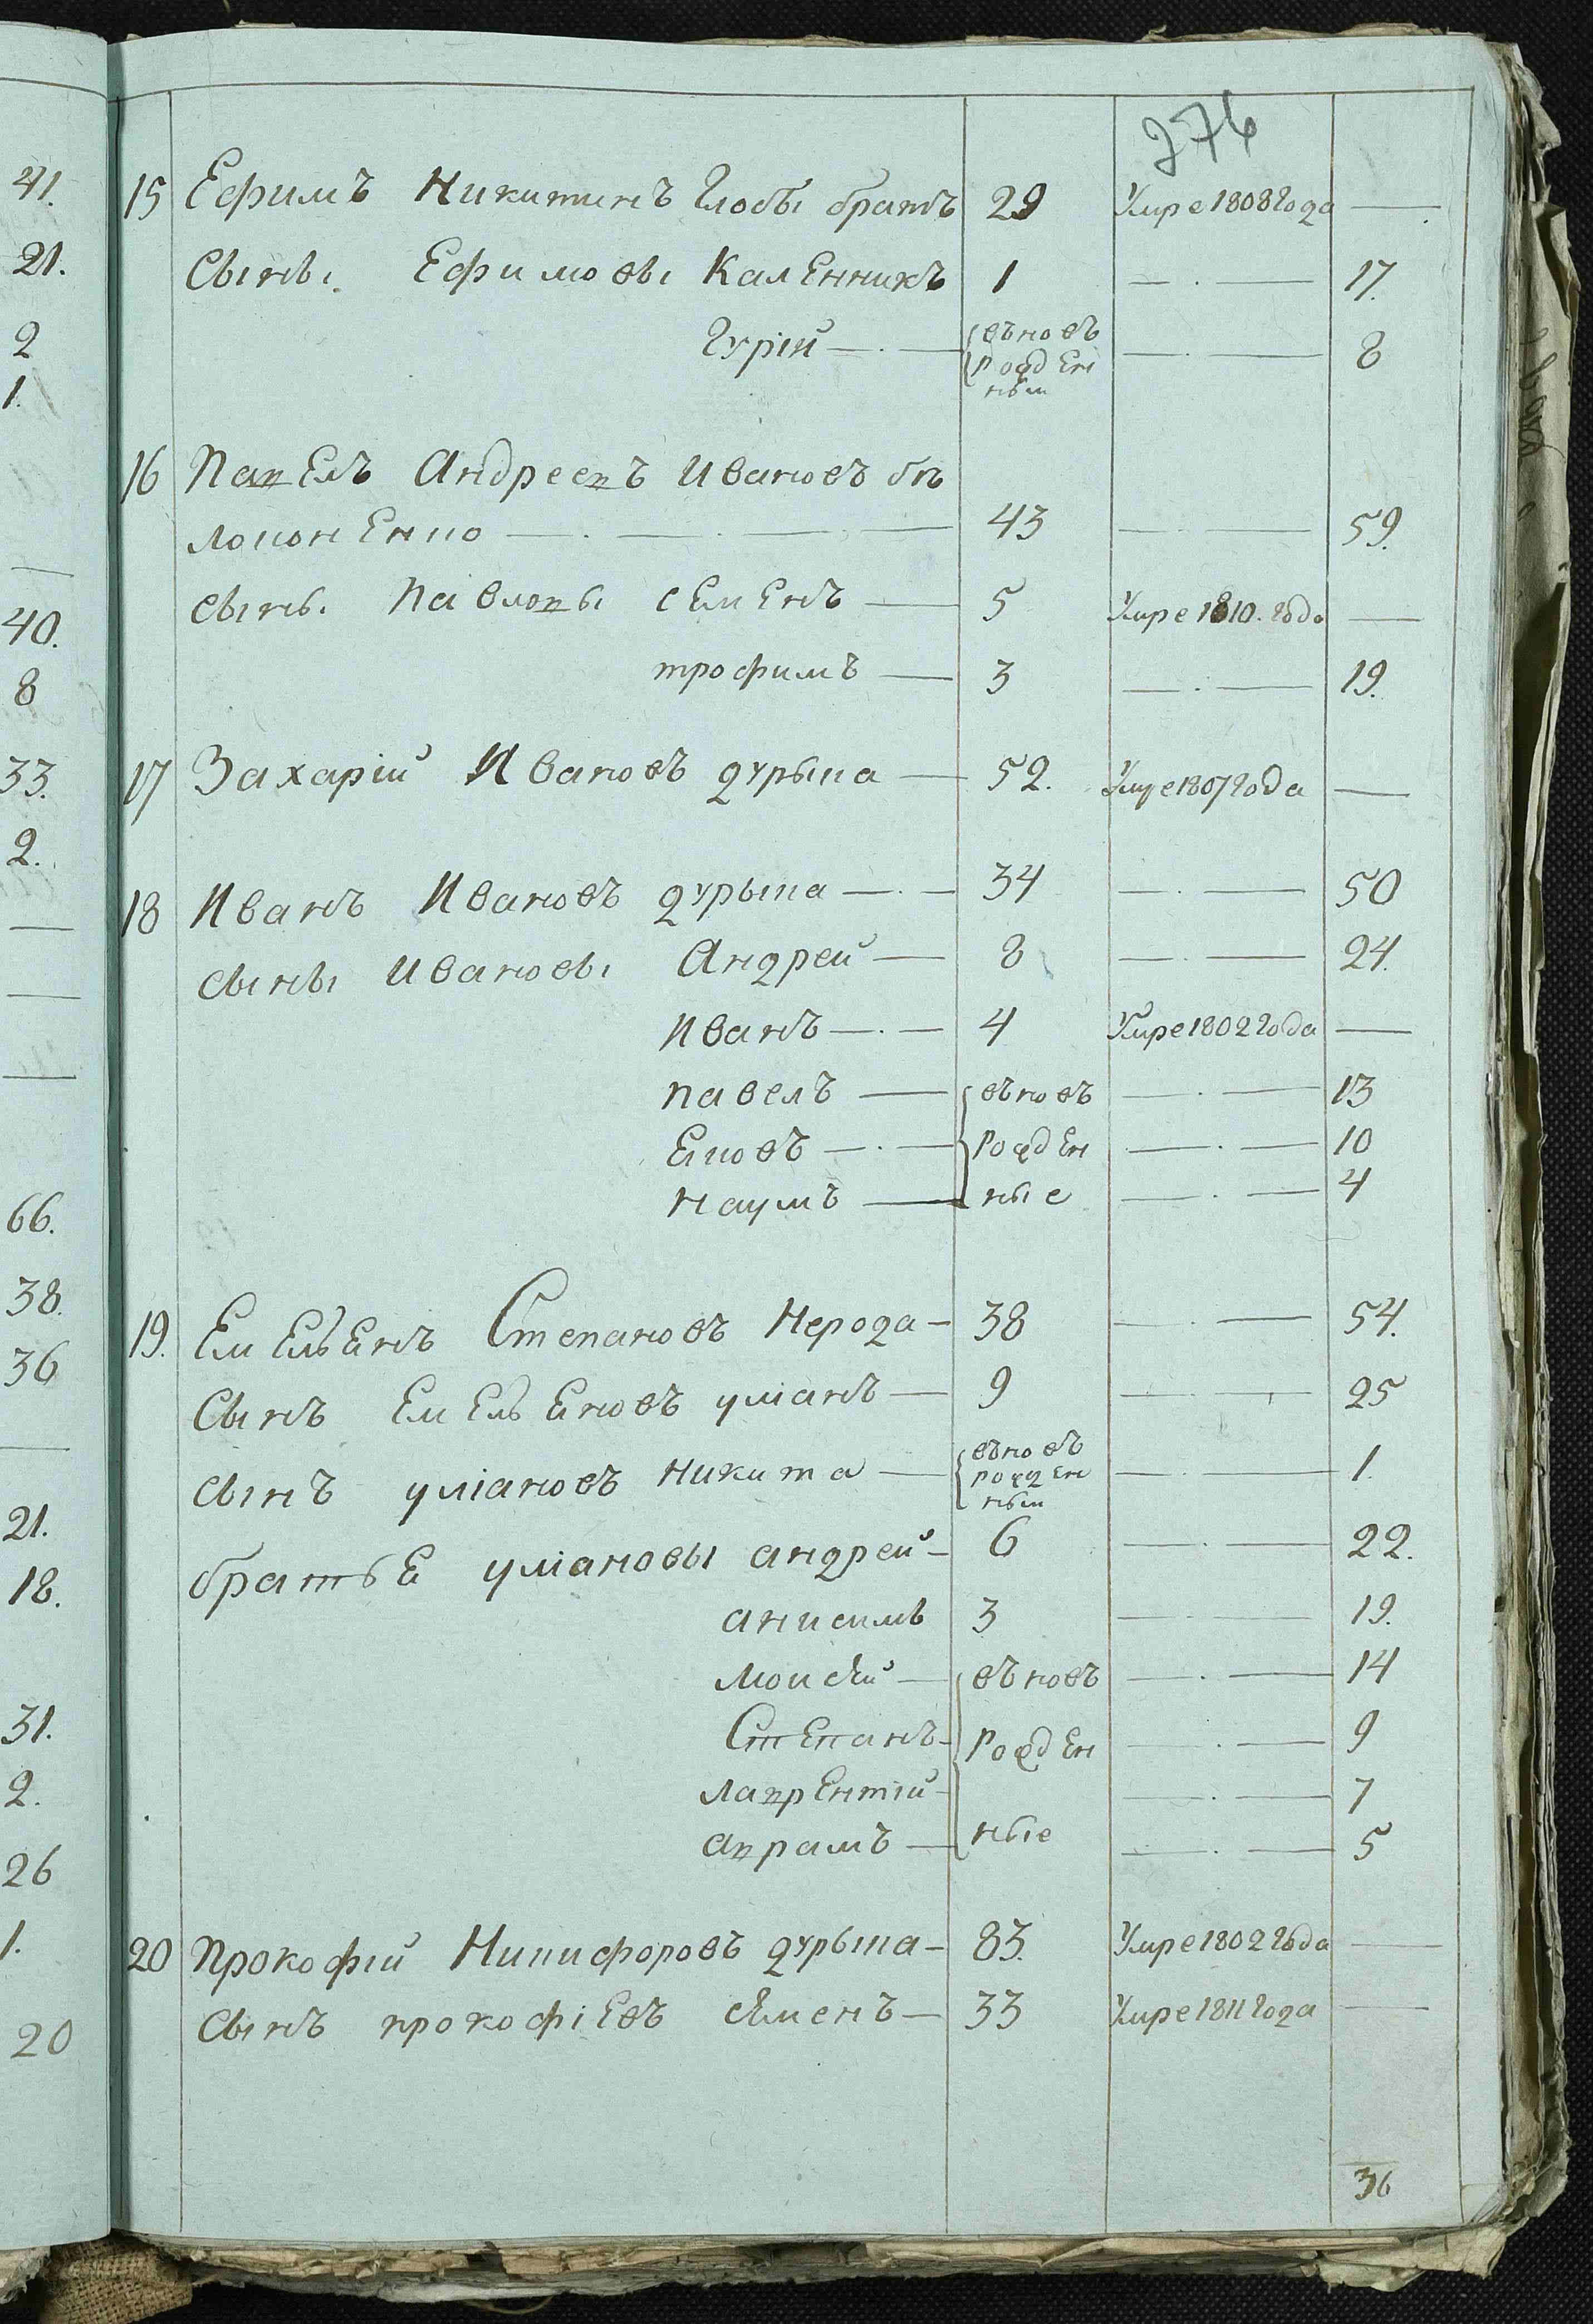 276
41.
21.
2
1.
40.
8
33.
2.
66.
38.
36
21.
18.
31.
2.
26
1.
20
15 Ефимъ Никитинъ Глобы братъ 29 Умре 1808 года —
Сыны. Ефимовы Каленникъ 1 — 17.
Гурій — въновь рожденный — 8
16 Павелъ Андреевъ Ивановъ бѣ
локоненко — 43 — 59.
сыны. Павловы семенъ — 5 Умре 1810. года —
трофимъ — 3 — 19.
17 Захарій Ивановъ дурыпа — 52. Умре 1807 года —
18 Иванъ Ивановъ дурыпа — 34 — 50
сыны Ивановы Андрей — 8 — 24.
Иванъ — 4 Умре 1802 года —
павелъ — въновь — 13
Яковъ — рожден — 10
наумъ — ные — 4
19. Емельянъ Степановъ Нерода — 38 — 54.
Сынъ Емельяновъ уліанъ — 9 — 25
сынъ уліановъ никита — въновь рожденный — 1.
братья уліановы андрей — 6 — 22.
анисимъ 3 — 19.
Моисѣй — въновь — 14
Степанъ — рожден — 9
лаврентій — 7
аврамъ — ные — 5
20 Прокофій Никифоровъ дурыпа — 83. Умре 1802 года —
Сынъ прокофіевъ сѣменъ — 33 Умре 1811 года —
36